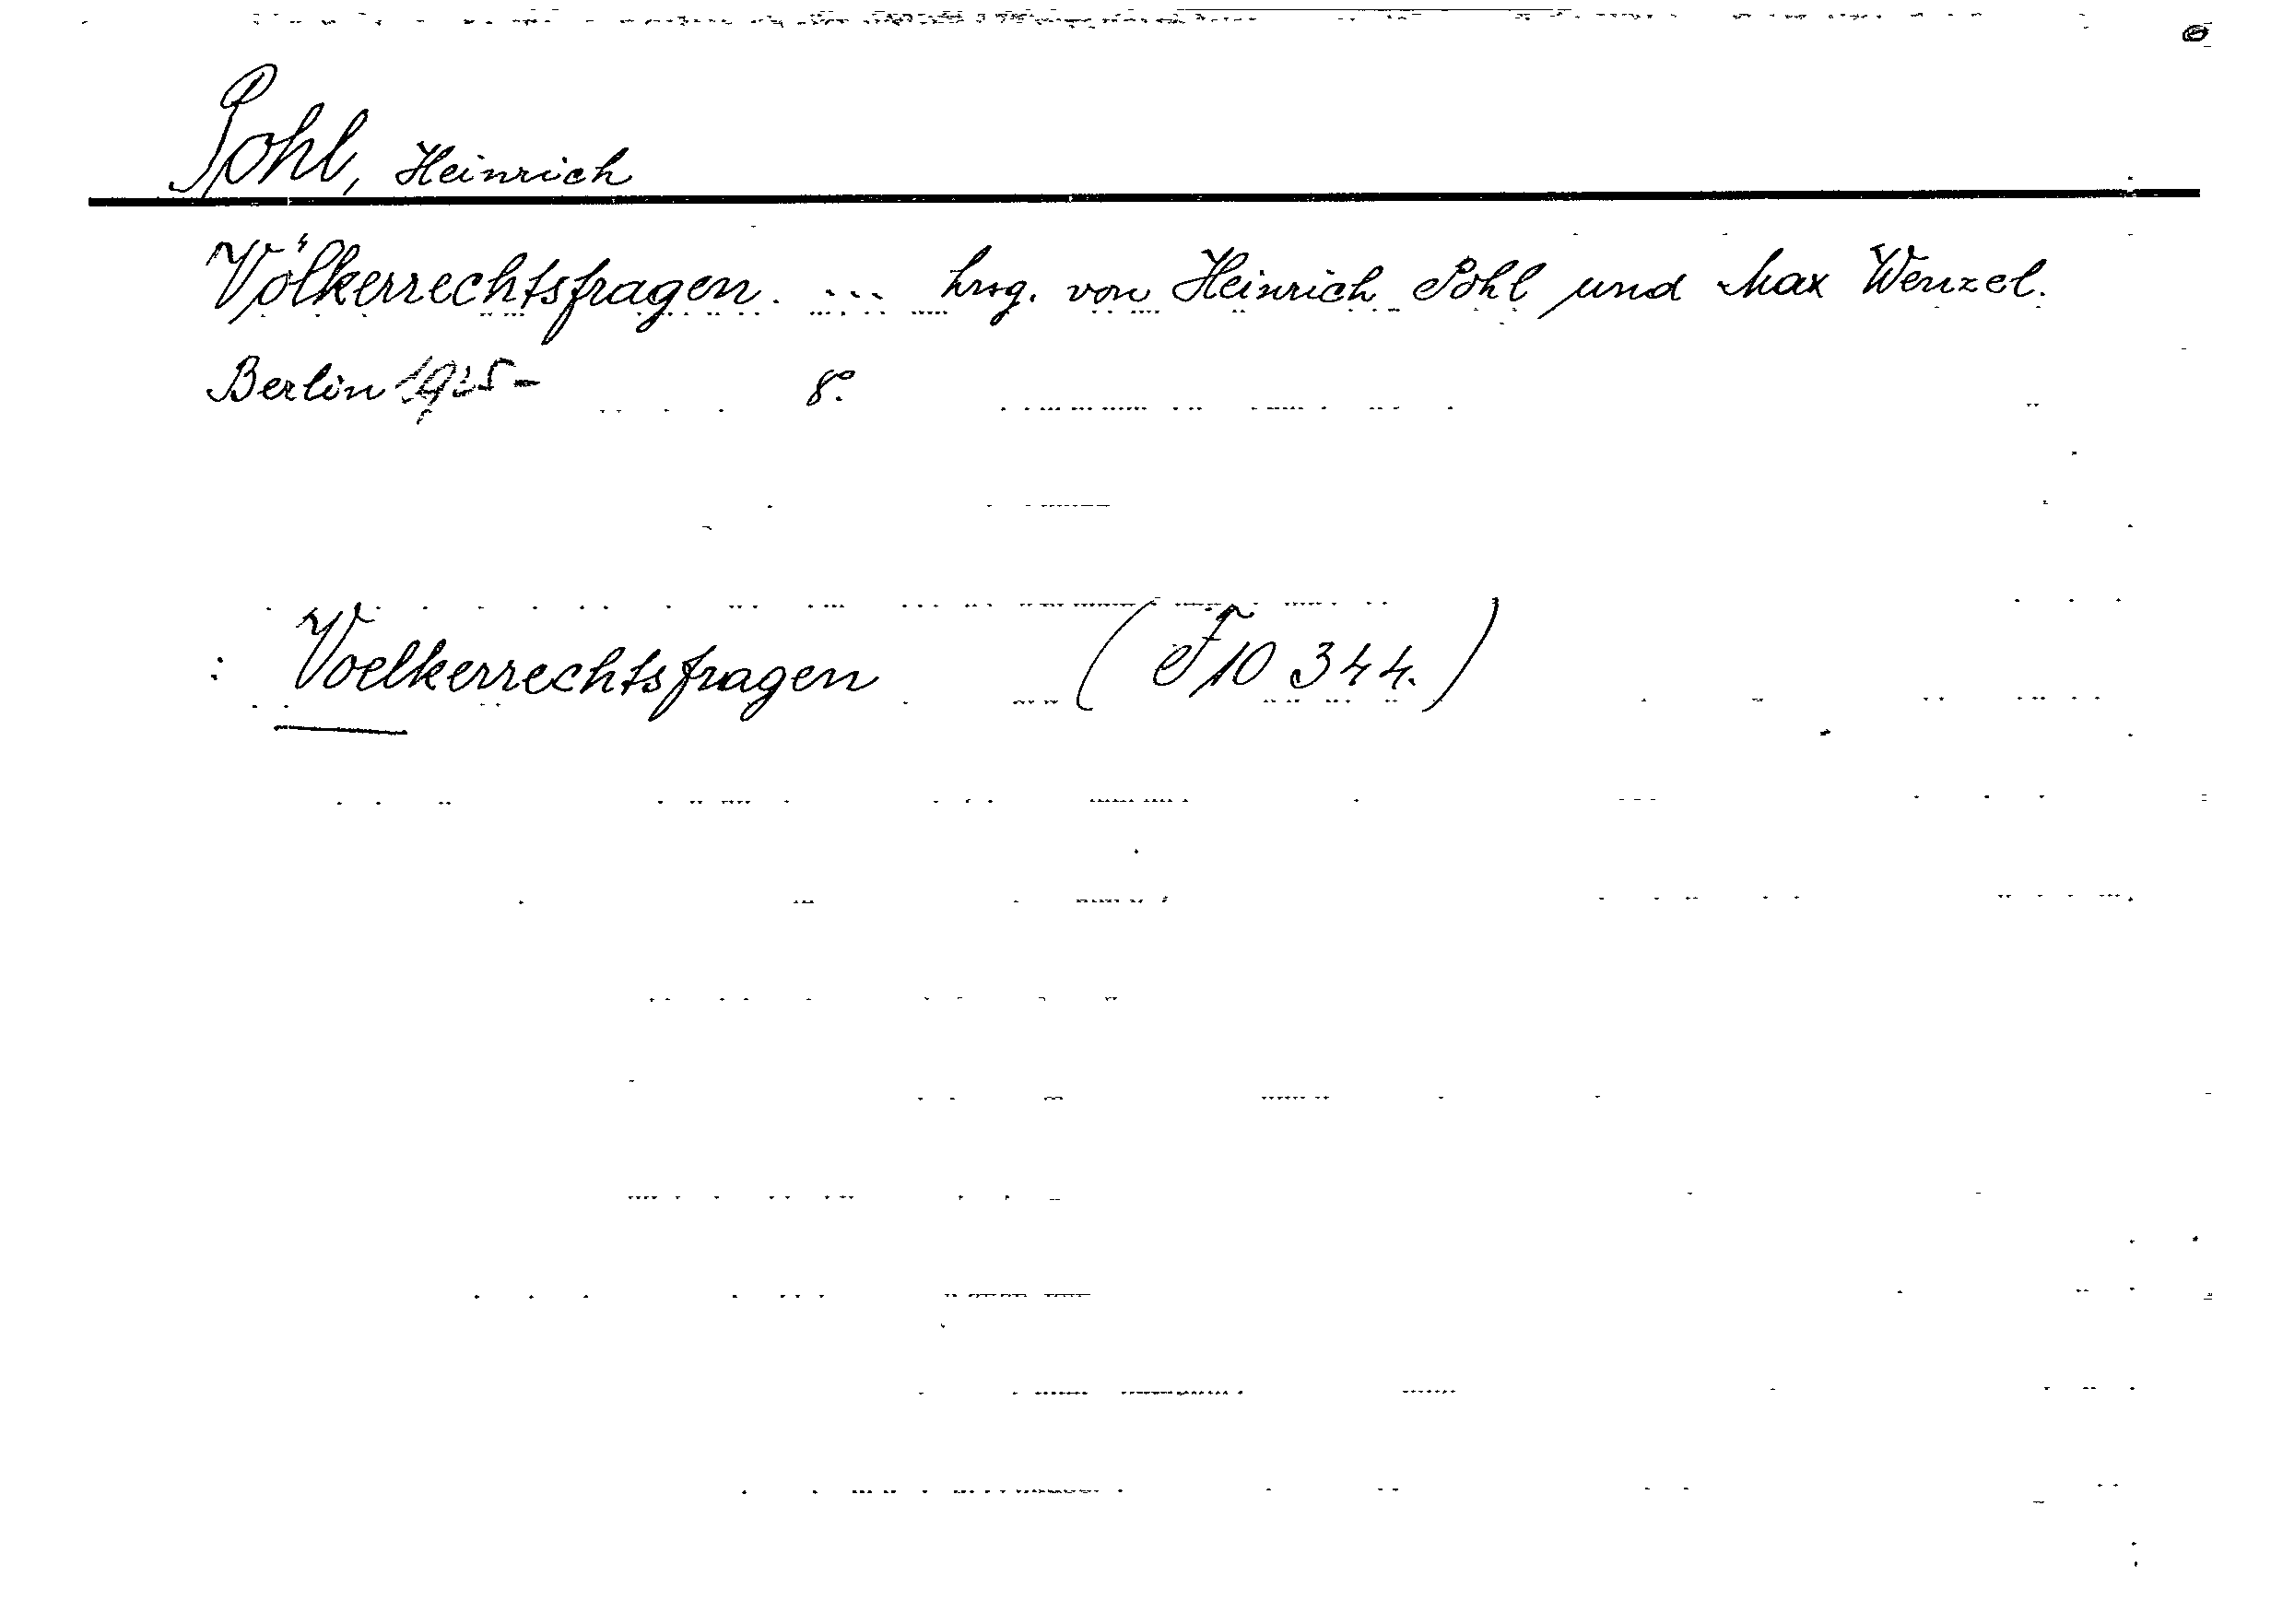 Pohl, Heinrich
Völkerrechtsfragen. ... hrsg. von Heinrich Pohl und Max Wenzel.
Berlin 1925- 8°.
: Voelkerrechtsfragen (F 10 344.)